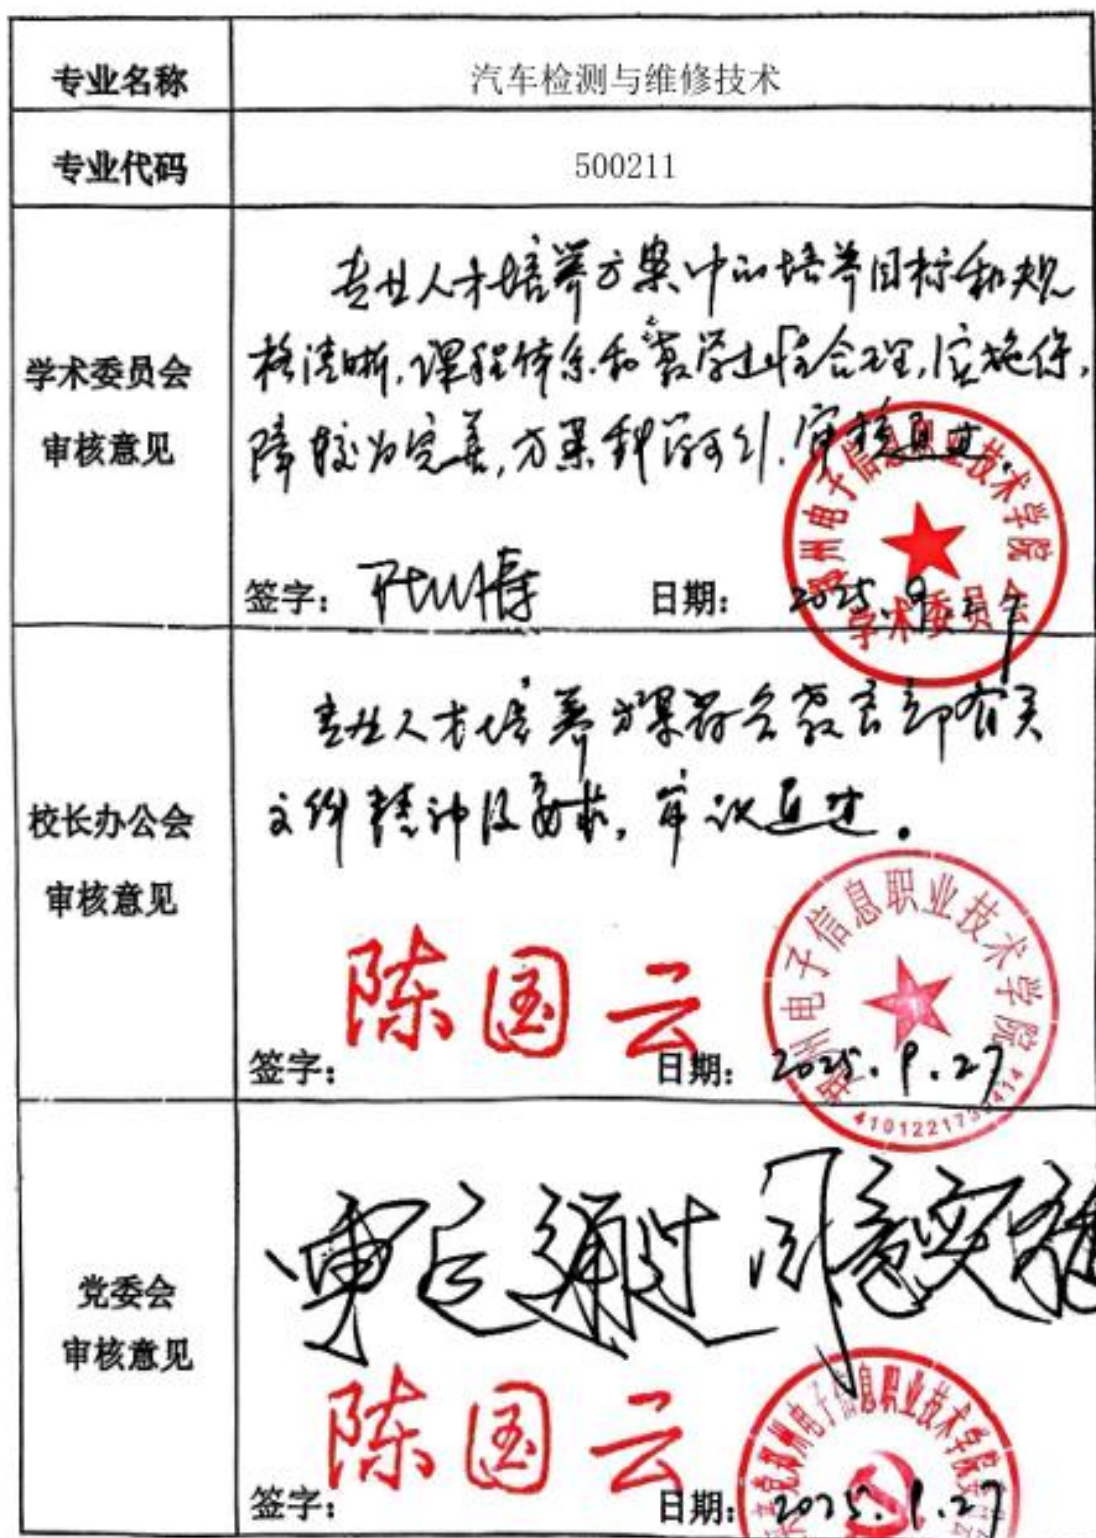 专业名称 汽车检测与维修技术
专业代码 500211
学术委员会
审核意见
专业人才培养方案中的培养目标和规
格清晰,课程体系和教学进程合理,实施保
障较为完善,方案科学可行,审核通过。
签字: 日期: 2025.9.27
郑州电子信息职业技术学院
学术委员会
校长办公会
审核意见
专业人才培养方案符合教育部有关
文件精神及要求,审议通过。
签字: 陈国云 日期: 2025.9.27
郑州电子信息职业技术学院
党委会
审核意见
审定通过 同意实施
签字: 陈国云 日期: 2025.9.27
郑州电子信息职业技术学院